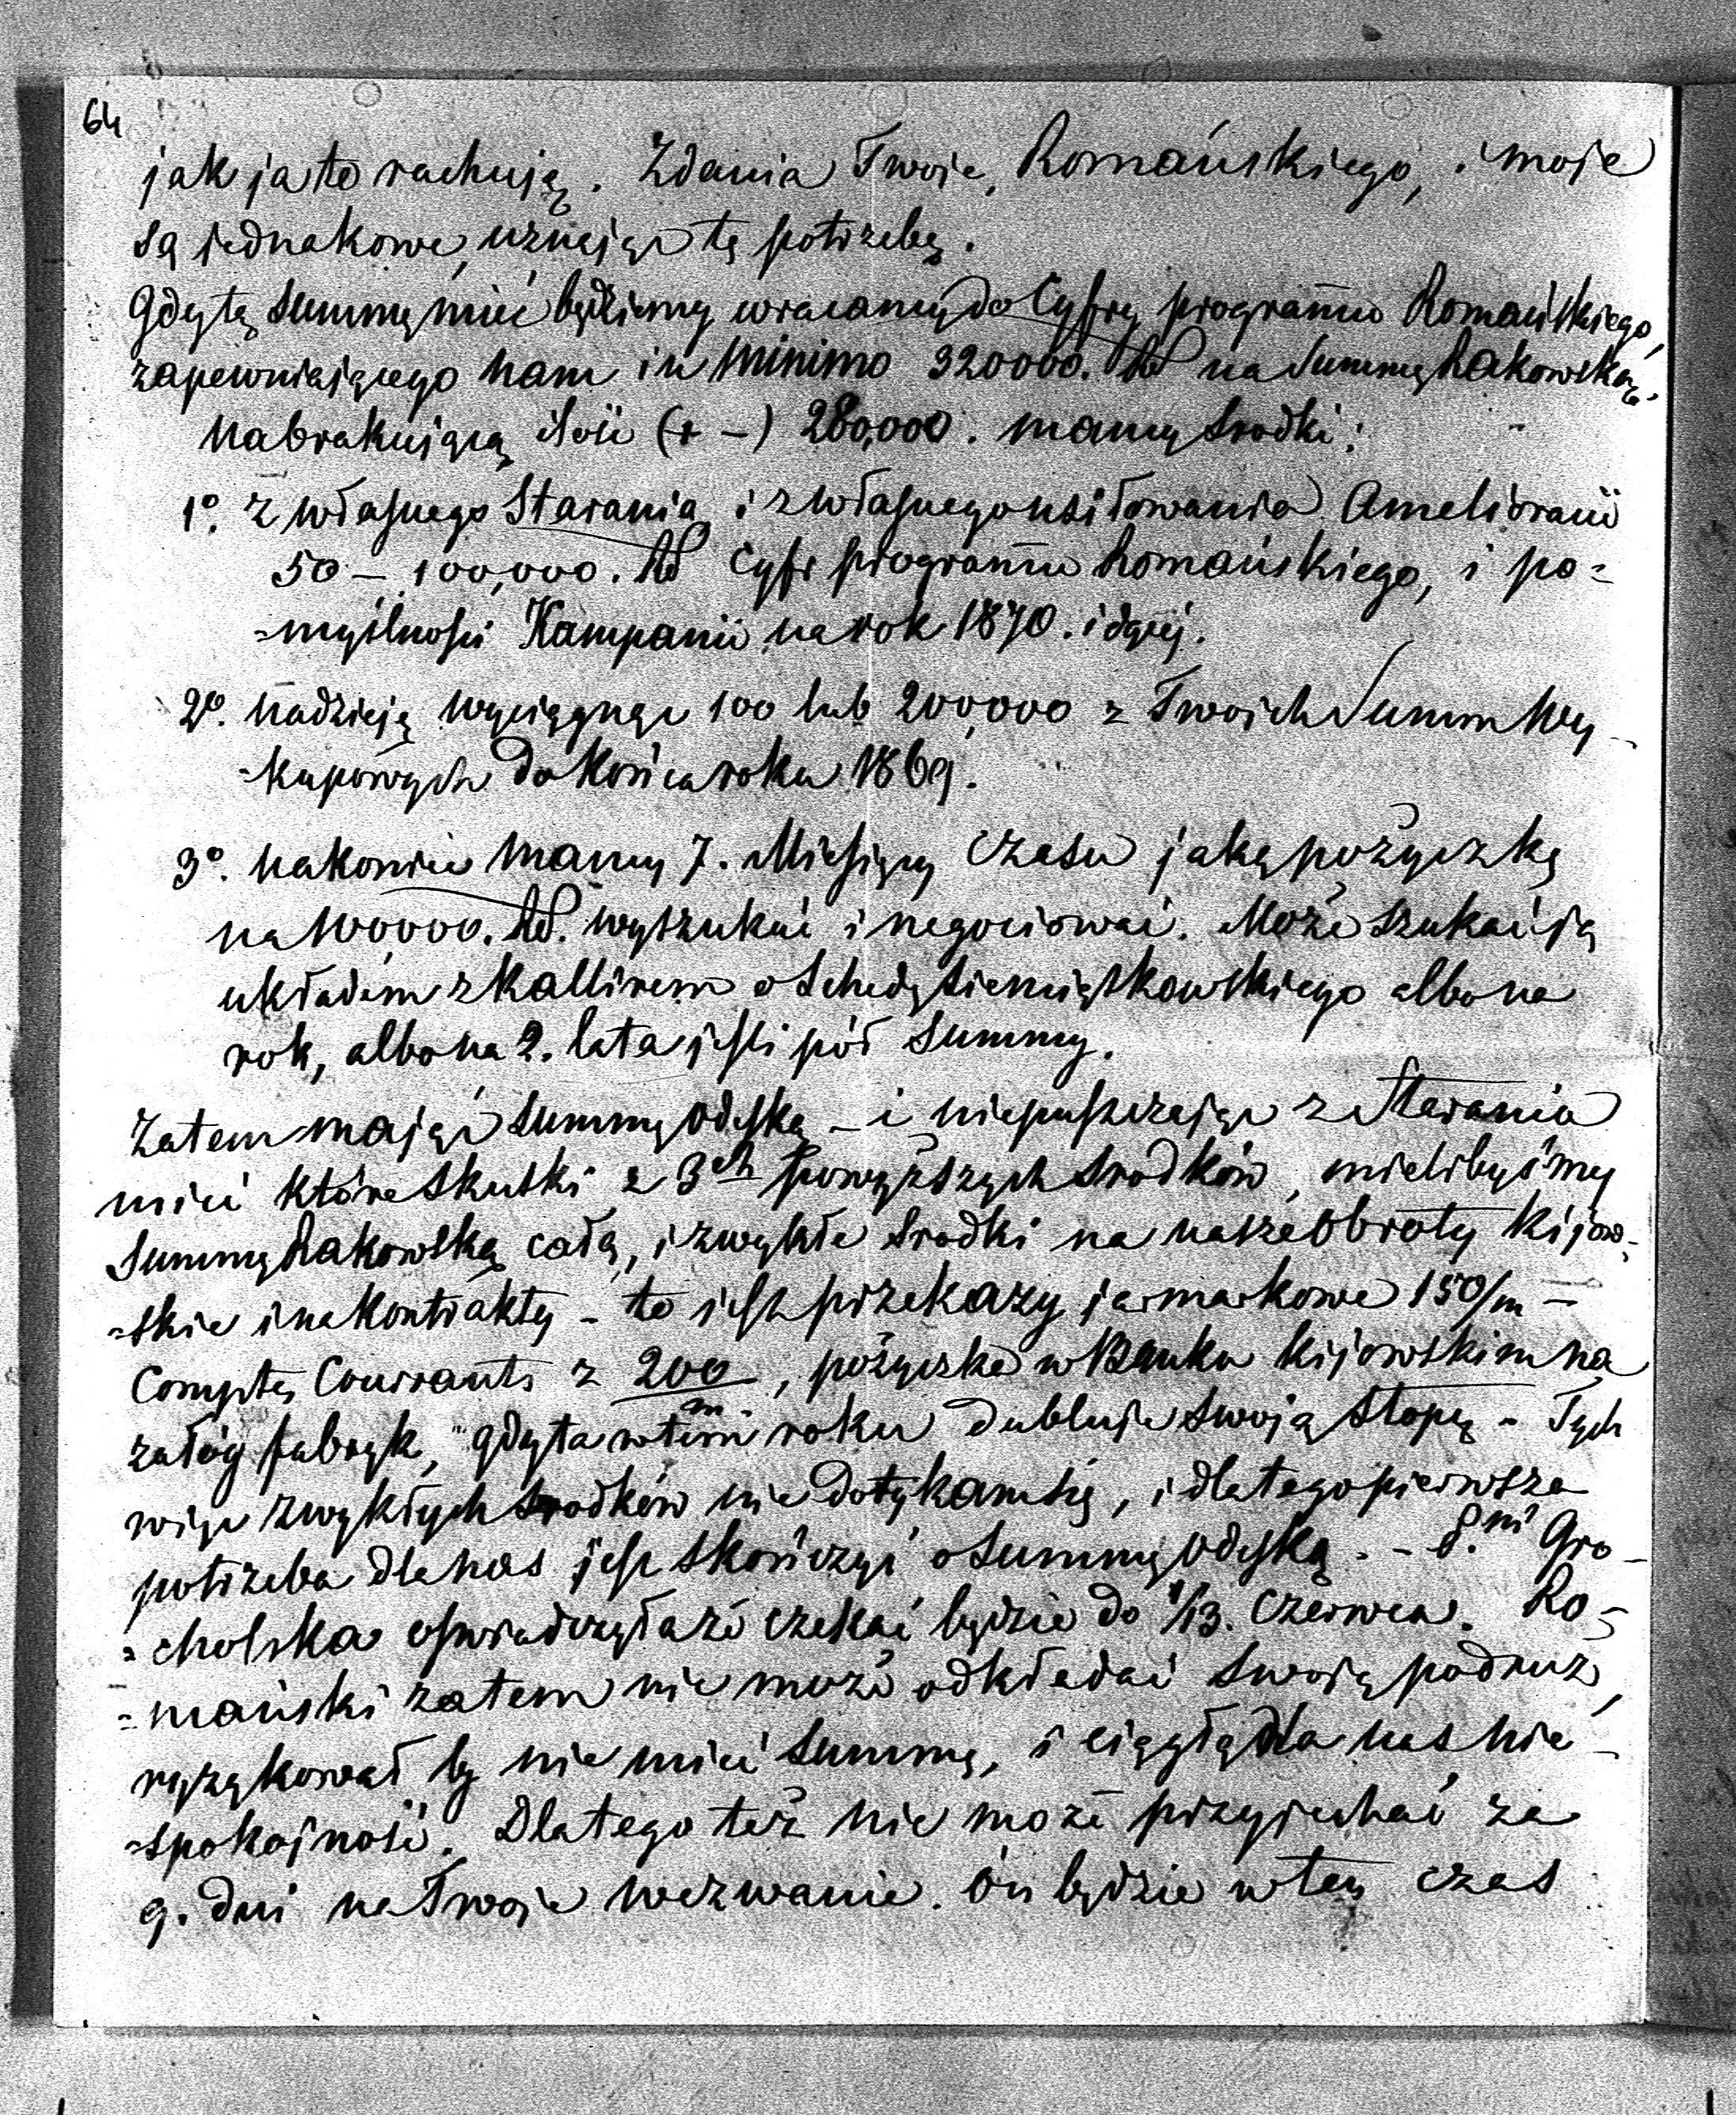 64
jak ja to rachują. Zdania Twoje, Romańskiego, i moje
są jednakowe, uznając tę potrzebę.
Gdy tę Summę mieć będziemy wracamy do Cyfry programu Romańskiego,
zapewniającego nam in minimo 320000. na Summę Rakowską.
Nabrakującą ilość (+ –) 280,000. mamy środki:
1º. z własnego Starania i z własnego usiłowania Amelioracii
50 – 100,000. Cyfr programu Romańskiego, i po=
=myślności Kampanii na rok 1870. idącej.
2º. nadzieję wyciągnąć 100 lub 200,000 z Twoich Summ Wy-
-kupowych do końca roku 1869.
3º. nakoniec mamy 7. Miesięcy czasu jaką pożyczkę
na 100,000. wyszukać i negociować. Może szukać ją
układem z o Schedę Siemiątkowskiego albo na
rok, albo na 2. lata jeśli pół Summy.
Zatem mając Summę Odeską – i niepuszczając z Starania
mieć które skutki z 3ch powyższych środków, mielibyśmy
Summę Rakowską całą, i zwykłe środki na nasze Obroty kijow=
=skie i na kontrakty – to jest przekazy jarmarkowe 150/m –
Compte Courrants z 200/m, pożyczka w Banku kijowskim na
załóg fabryk, gdy ta w tem roku dubluje swoją Stopę – Tych
więc zwykłych środków nie dotykam się, i dlatego pierwsza
potrzeba dla nas jest skończyć o Summę Odeską. – Pni Gro-
=cholska oświadczyła że czekać będzie do 1/13. Czerwca. Ro=
=mański zatem nie może odkładać swoją podruż,
ryzykował by nie mieć Summę, i ciągłą dla nas nie-
-spokojność. Dlatego też nie może przyjechać za
9. dni na Twoje wezwanie. On będzie w ten czas